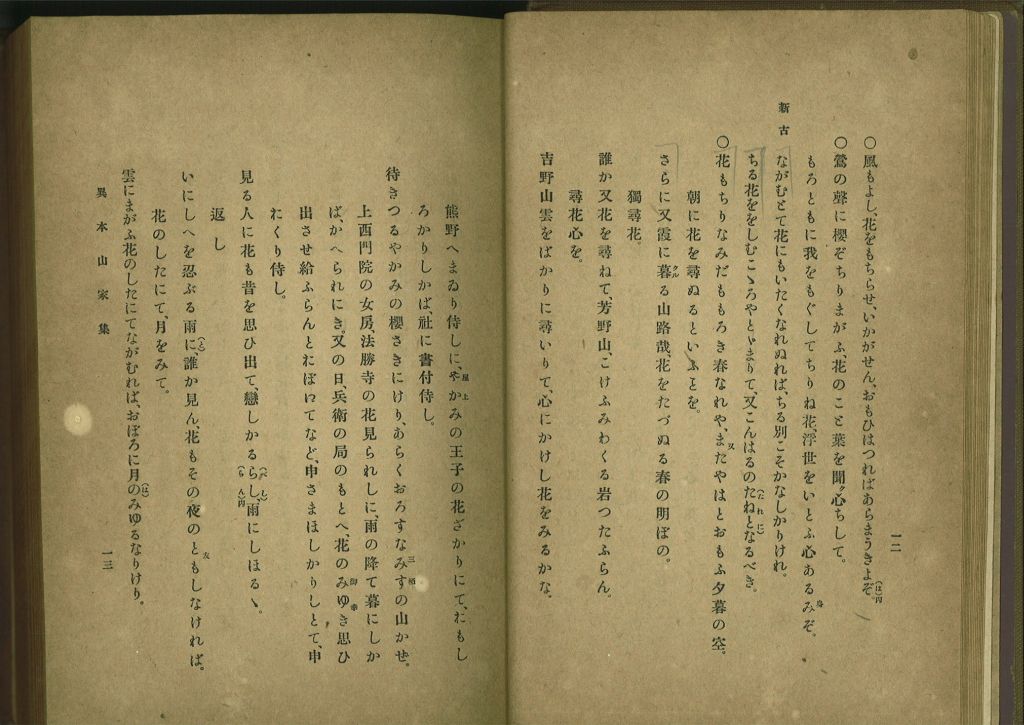 一二
〇風もよし、花をもちらせ、いかがせん、おもひはつればあらまうきよぞ。
(は)丙
〇鶯の聲に櫻ぞちりまがふ、花のこと葉を聞心ちして。
もろともに我をもぐしてちりね花、浮世をいとふ心あるみぞ。
身
新古
ながむとて花にもいたくなれぬれば、ちる別こそかなしかりけれ。
ちる花ををしむこゝろやとゞまりて、又こんはるのたねとなるべき。
(たれに)
〇花もちりなみだももろき春なれや、またやはとおもふ夕暮の空。
又
朝に花を尋ぬるといふとを。
さらに又霞に暮る山路哉、花をたづぬる春の明ぼの。
クル
獨尋花。
誰か又花を尋ねて、芳野山こけふみわくる岩つたふらん。
尋花心を。
吉野山雲をばかりに尋いりて、心にかけし花をみるかな。
熊野へまゐり侍しに、やかみの王子の花ざかりにて、おもし
屋上
ろかりしかば、社に書付侍し。
待きつるやかみの櫻さきにけり、あらくおろすなみすの山かぜ。
三栖
上西門院の女房、法勝寺の花見られしに、雨の降て暮にしか
ば、かへられにき。又の日、兵衛の局のもとへ、花のみゆき思ひ
御幸
出させ給ふらんとおぼいてなど、申さまほしかりしとて、申
おくり侍し。
見る人に花も昔を思ひ出て、戀しかるらし、雨にしほるゝ。
(べし)
(らん)丙
返し
いにしへを忍ぶる雨に、誰か見ん、花もその夜のともしなければ。
(と)
友
花のしたにて、月をみて。
雲にまがふ花のしたにてながむれば、おぼろに月のみゆるなりけり。
(は)
異本山家集
一三